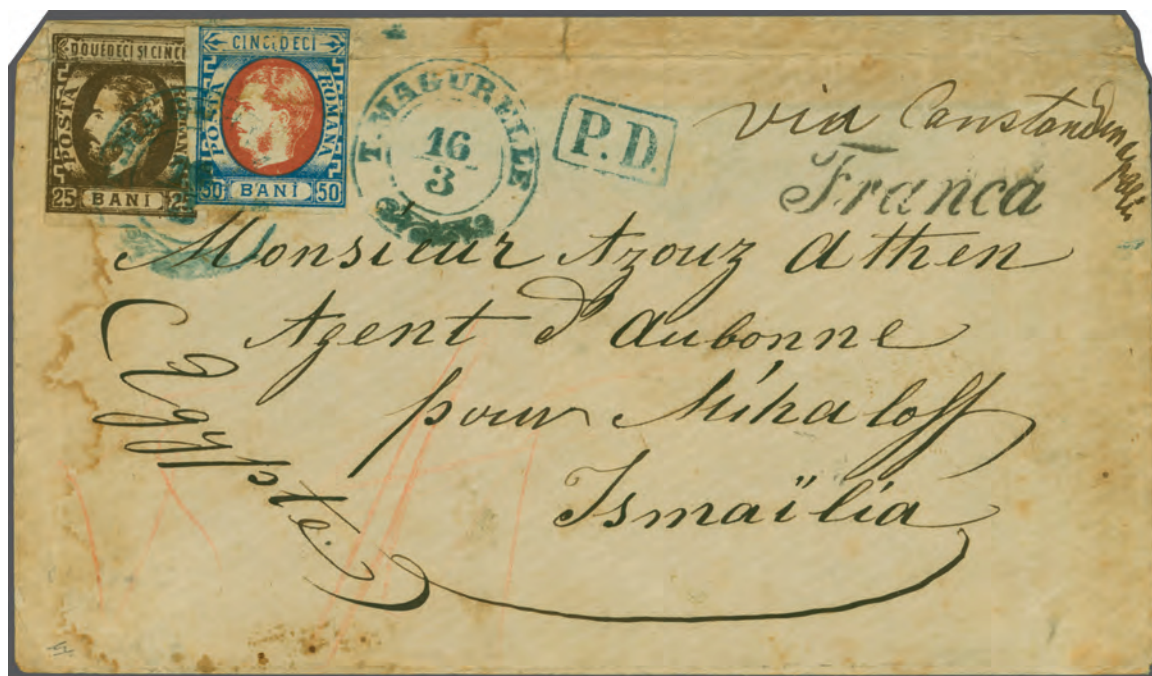 DOUĔDECI SI CINCI
POSTA ROMANA
25 BANI 25
CINCIDECI
POSTA ROMANA
50 BANI 50
T. MAGURELLE
16
3
P.D.
via Constandinopoli
Franca
Monsieur Azouz Athen
Agent d'Aubonne
pour Mihaloff
Ismaïlia
Egypte.